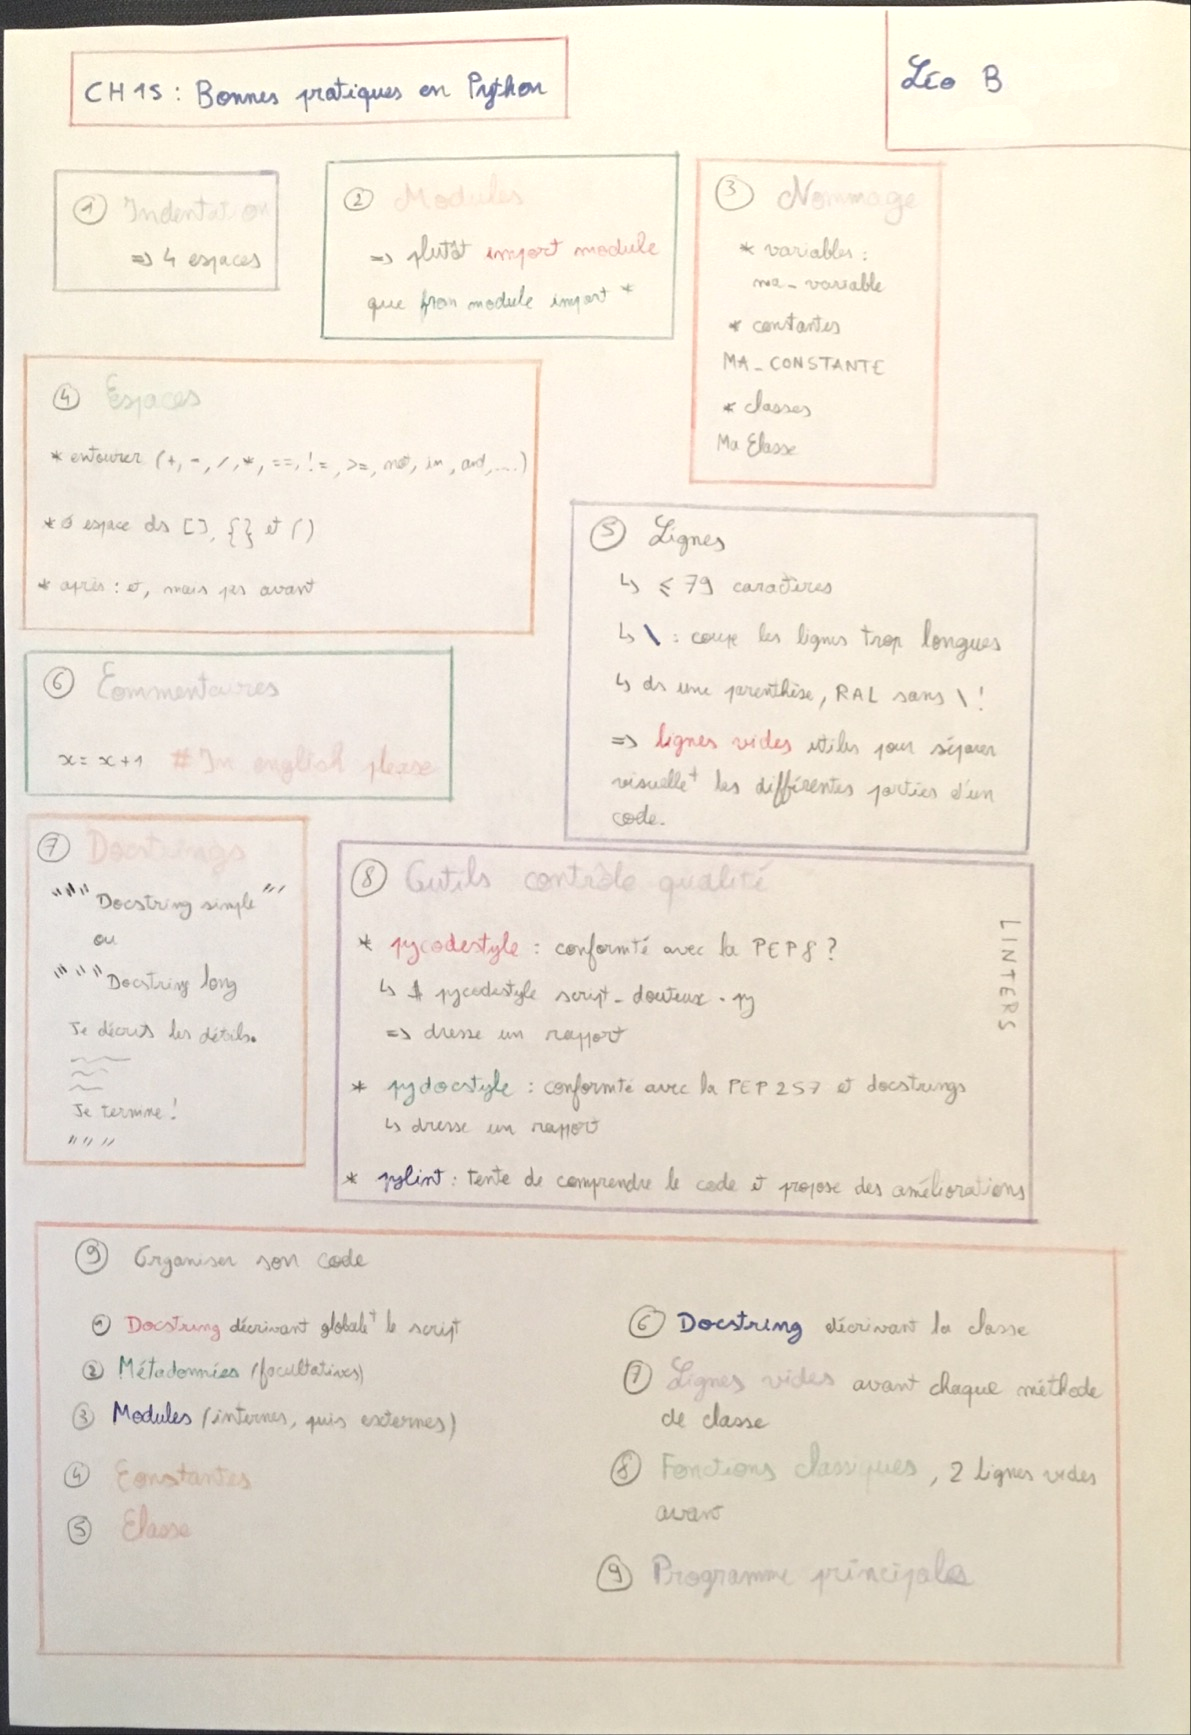 CH 15 : Bonnes pratiques en Python
Léo B
① Indentation
=> 4 espaces
② Modules
=> plutôt import module
que from module import *
③ Nommage
* variables :
ma_variable
* constantes
MA_CONSTANTE
* classes
MaClasse
④ Espaces
* entourer (+, -, /, *, ==, !=, >=, not, in, and, ....)
* ∅ espace ds [], {} et ()
* après : et , mais pas avant
⑤ Lignes
↳ ≤ 79 caractères
↳ \ : coupe les lignes trop longues
↳ ds une parenthèse, RAL sans \ !
=> lignes vides utiles pour séparer
visuelle⁺ les différentes parties d'un
code.
⑥ Commentaires
x = x+1 # In english please
⑦ Docstrings
"""Docstring simple"""
ou
"""Docstring long
Je décris les détails.
Je termine !
"""
⑧ Outils contrôle qualité
LINTERS
* pycodestyle : conformité avec la PEP 8 ?
↳ $ pycodestyle script_douteux.py
=> dresse un rapport
* pydocstyle : conformité avec la PEP 257 et docstrings
↳ dresse un rapport
* pylint : tente de comprendre le code et propose des améliorations
⑨ Organiser son code
① Docstring décrivant globale⁺ le script
② Métadonnées (facultatives)
③ Modules (internes, puis externes)
④ Constantes
⑤ Classe
⑥ Docstring décrivant la classe
⑦ Lignes vides avant chaque méthode
de classe
⑧ Fonctions classiques, 2 lignes vides
avant
⑨ Programme principale